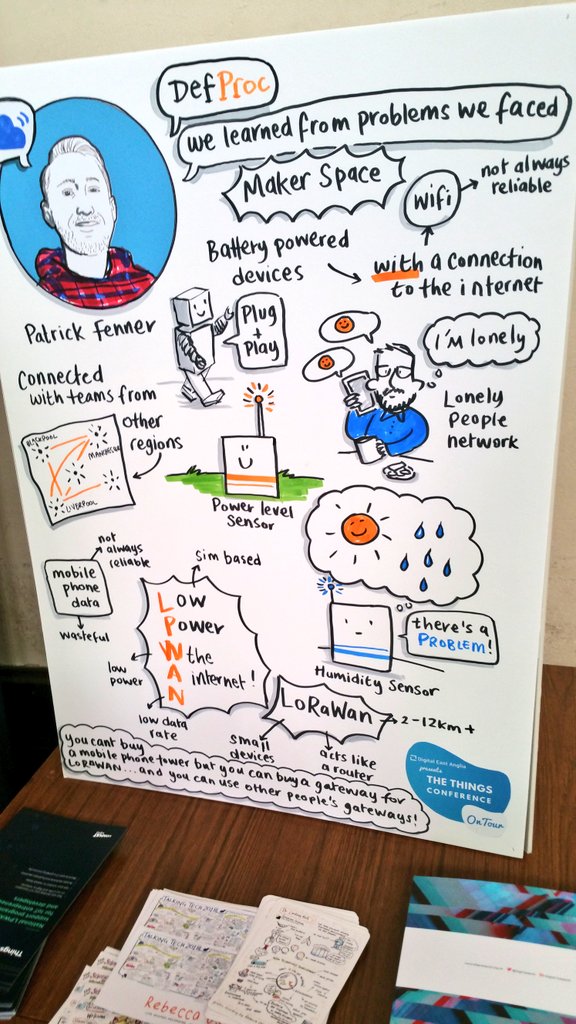 DefProc
we learned from problems we faced
Maker Space
wifi
not always
reliable
Battery powered
devices
with a connection
to the internet
Patrick Fenner
Plug
+
Play
I'm lonely
Lonely
People
network
Connected
with teams from
other
regions
BLACKPOOL
MANCHESTER
LIVERPOOL
Power level
Sensor
not
always
reliable
mobile
phone
data
wasteful
sim based
Low
Power
the
internet!
LPWAN
low
power
low data
rate
there's a
PROBLEM!
Humidity Sensor
LoRaWan
2-12km+
small
devices
acts like
a router
you cant buy
a mobile phone tower but you can buy a gateway for
LORAWAN...and you can use other people's gateways!
Digital East Anglia
presents
THE THINGS
CONFERENCE
On Tour
TALKING TECH 2018
TALKING TECH 2018
Rebecca
Things